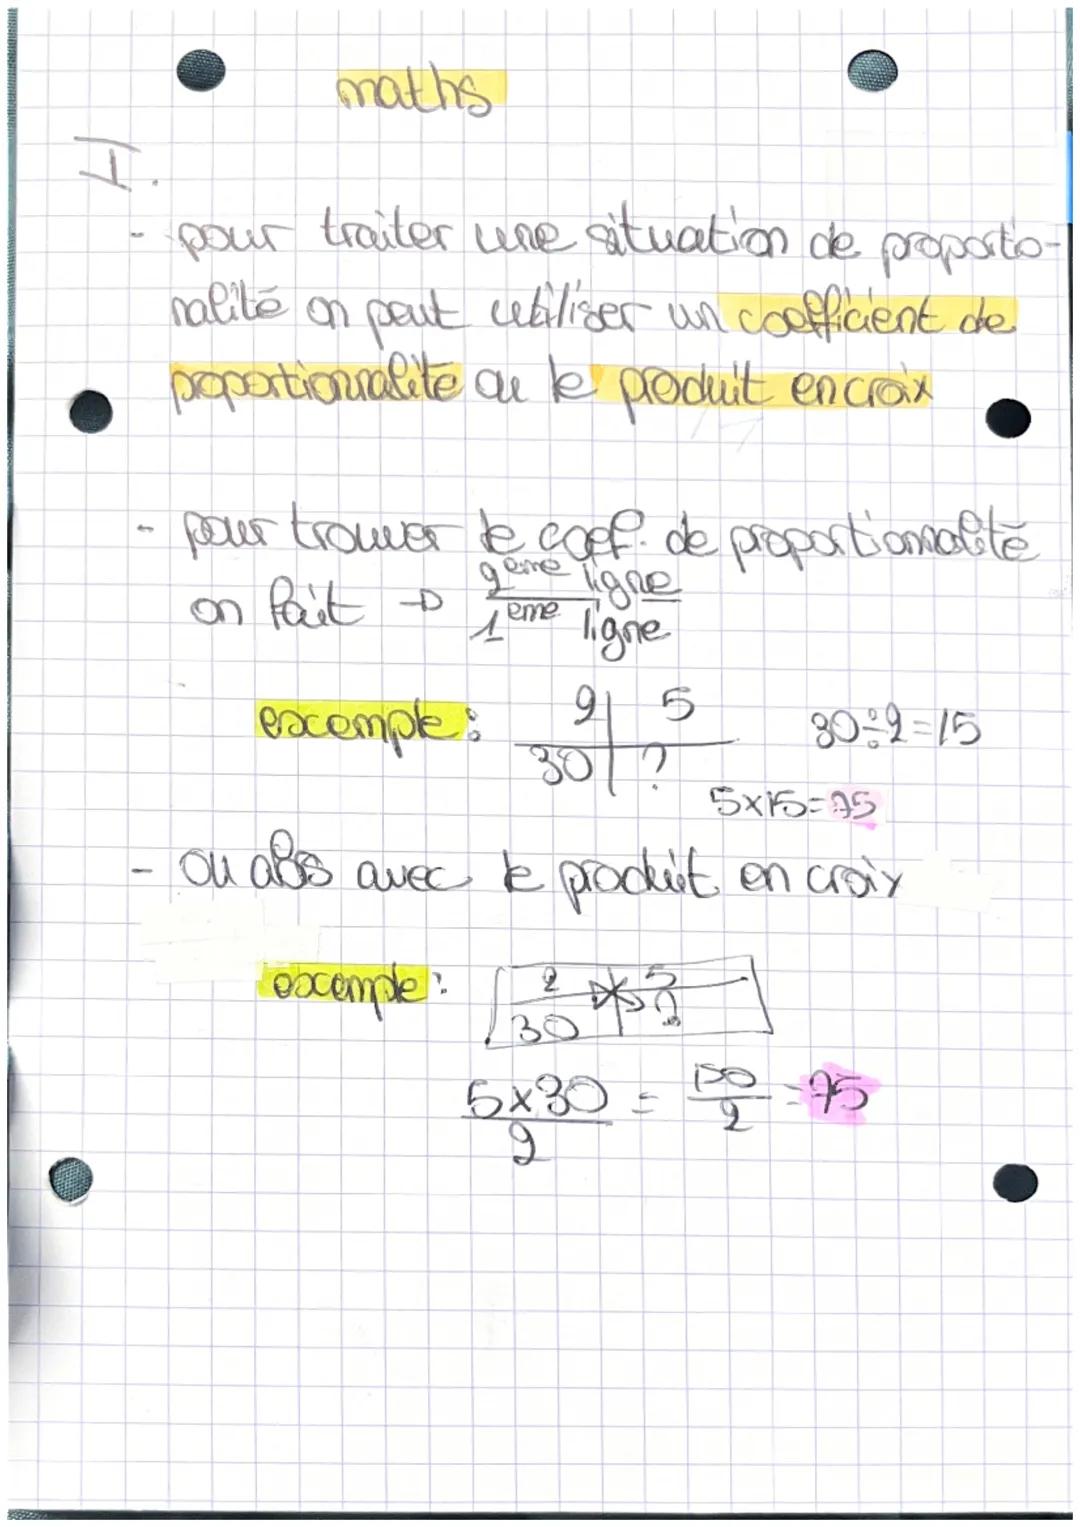 maths
I.
- pour traiter une situation de proportio-
nalité on peut utiliser un coefficient de
proportionnalité ou le produit en croix
- pour trouver le coef. de proportionnalité
2ème ligne
on fait → 1ème ligne
excemple : 2 | 5 30÷2=15
30 | ?
5x15=75
- ou alss avec le produit en croix
excemple : 2 5
30 ?
5x30 = 150 = 75
2 2